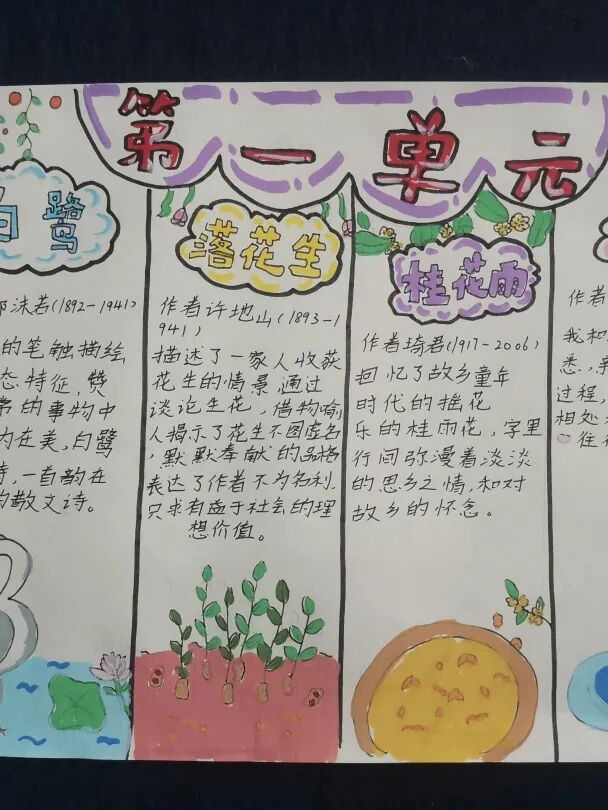 第一单元
白鹭
沫若(1892-1941)
的笔触描绘
态特征,赞
常的事物中
内在美,白鹭
诗,一首韵在
的散文诗。
落花生
作者许地山(1893-1
941)
描述了一家人收获
花生的情景通过
谈论生花,借物喻
人揭示了花生不图虚名,
默默奉献的品格
表达了作者不为名利.
只求有益于社会的理
想价值。
桂花雨
作者琦君(1917-2006)
回忆了故乡童年
时代的摇花
乐的桂雨花,字里
行间弥漫着淡淡
的思乡之情,和对
故乡的怀念。
作者
我和
悉..亲
过程,
相处
住